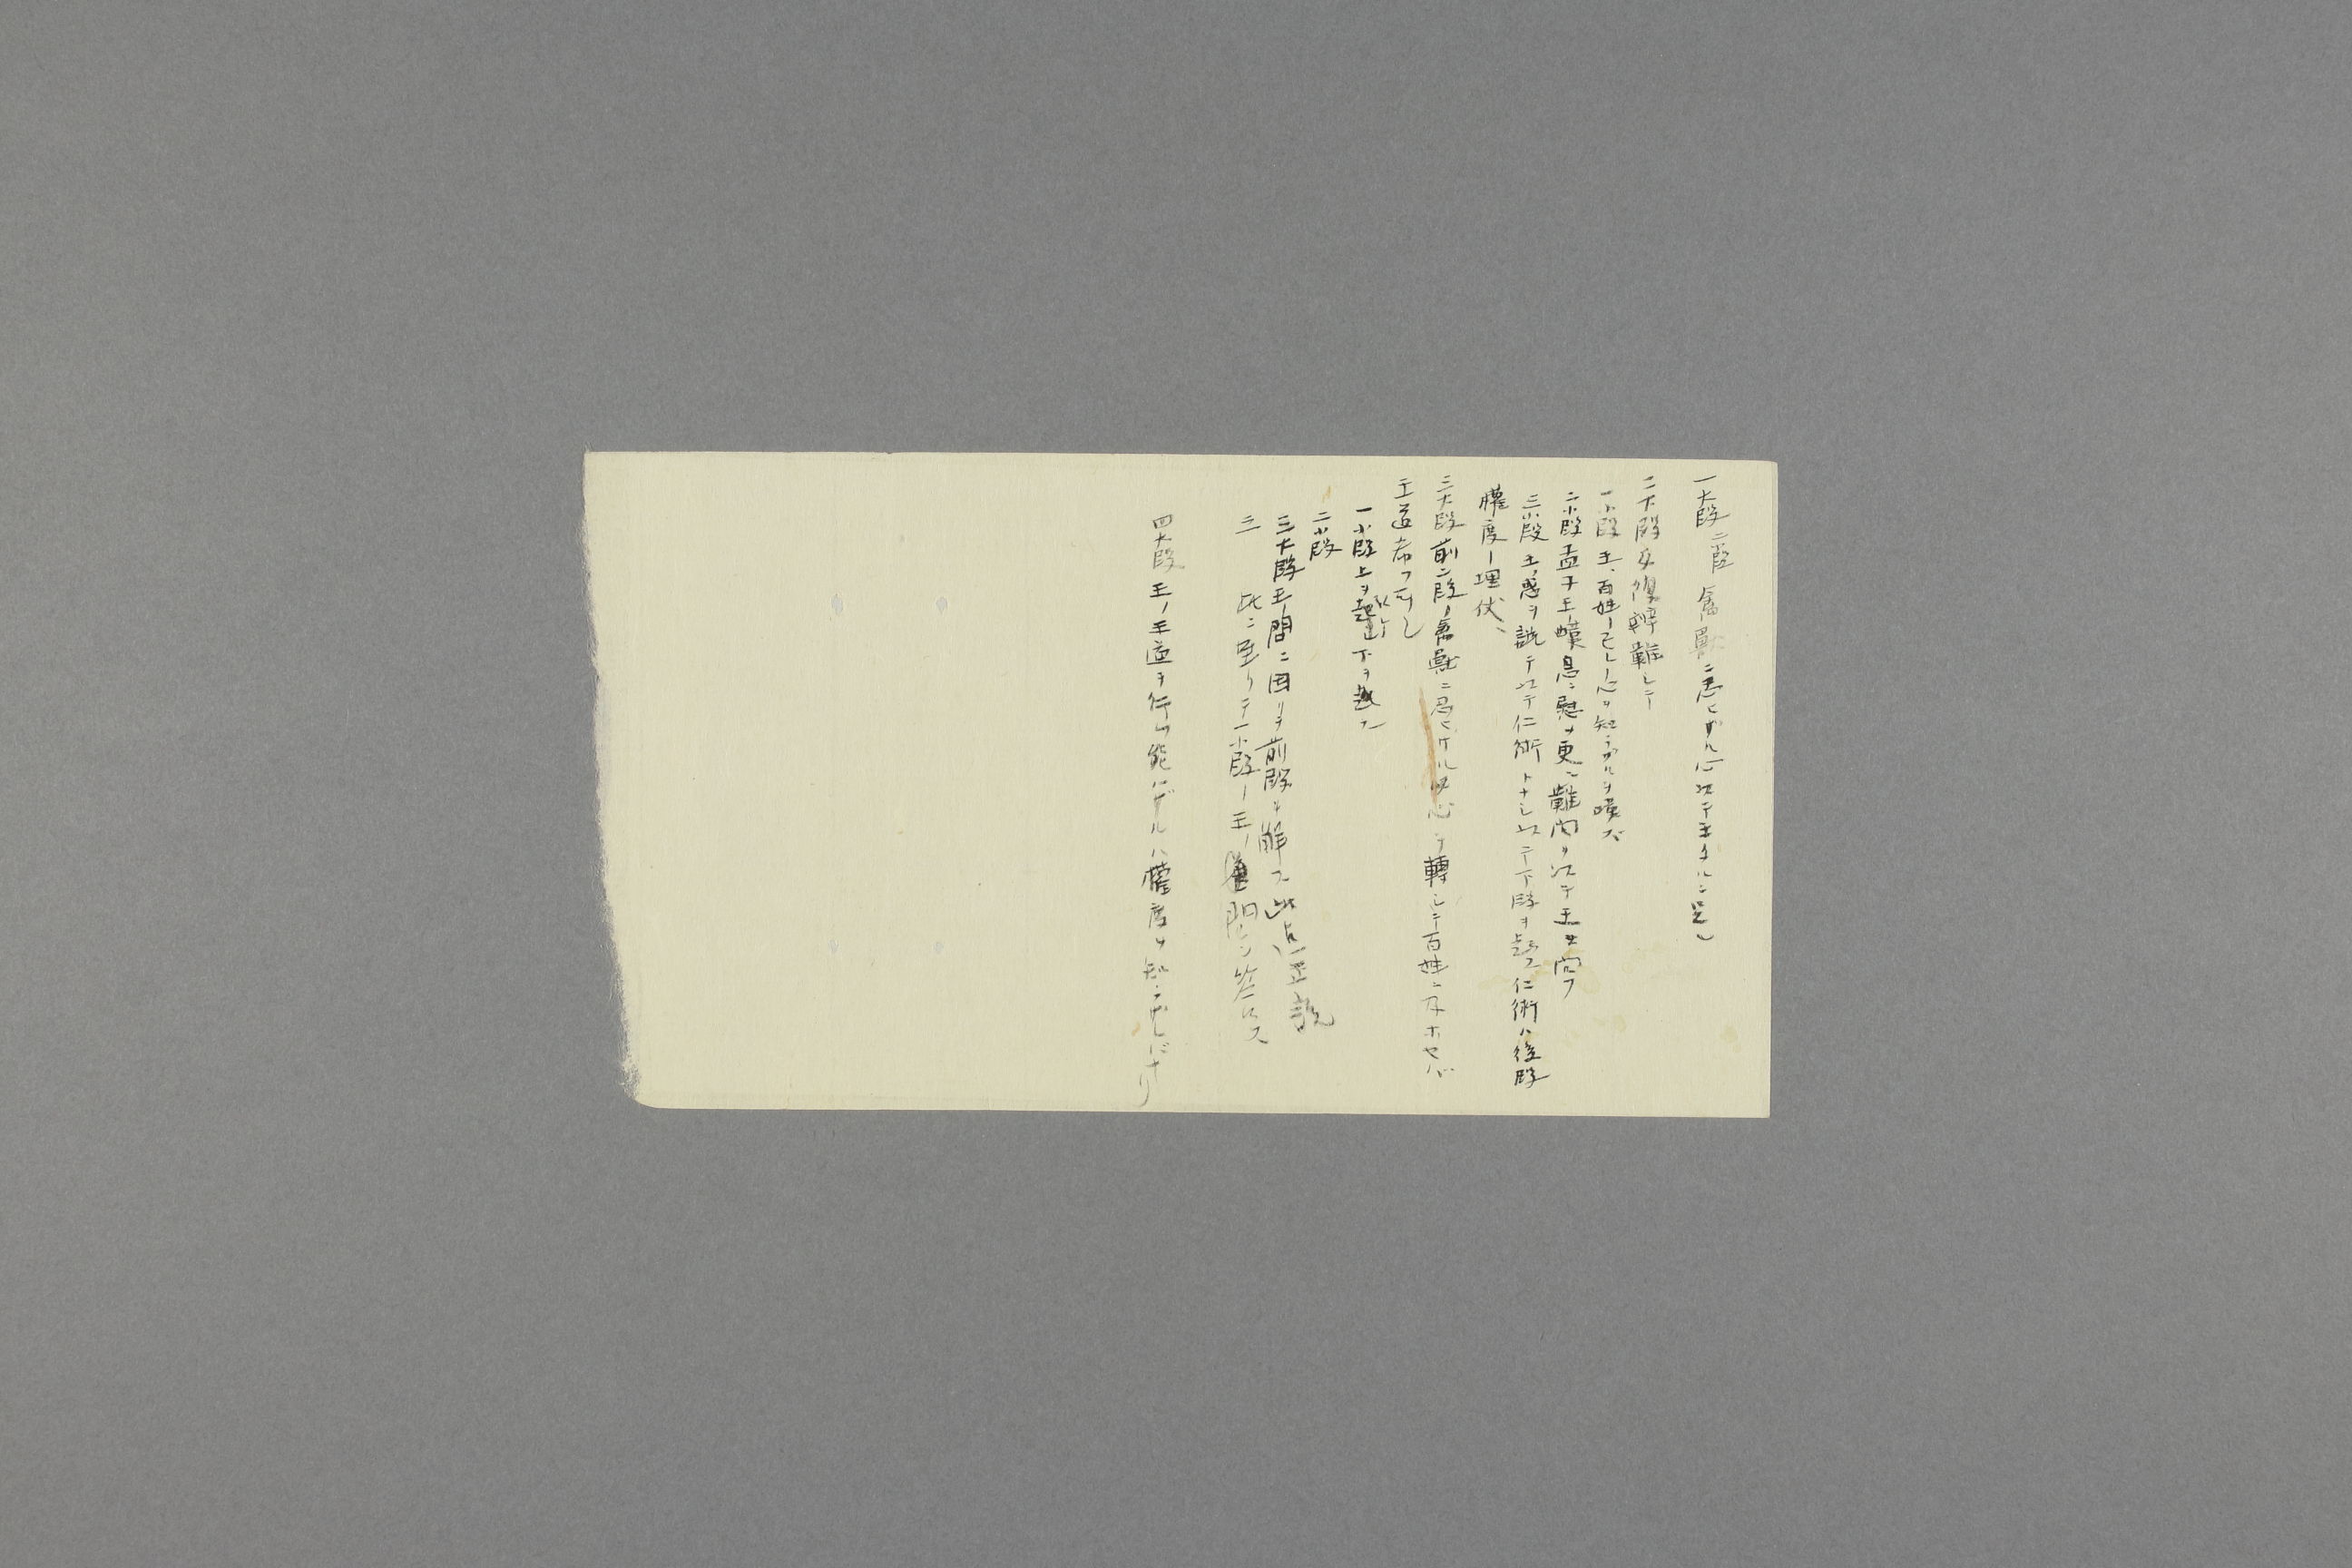 一大段二段 禽獣ニ忍ビザル心以テ王タルニ足ル
二大段 反復辨難シテ
一小段 王、百姓ノ己レノ心ヲ知ラザルヲ嘆ズ
二小段 孟子王ノ嘆息ニ 更ニ難問ヲ以テ王ヲ窮フ
三小段 王ノ惑ヲ説テ以テ仁術トナシ以テ下段ヲ起ス 仁術ハ後段
權度ノ埋伏、
三大段 前二段ノ禽獣ニ忍ビザル 心ヲ轉シテ百姓ニ及ホセバ
王道布フ可シ
一小段 上ヲ承ケ下ヲ起ス
二小段
三大段 王ノ問ニ因リテ前段ヲ解ス 此ノ点ハ正説
三 此ニ至リテ一小段ノ王ノ 問ニ答ヘス
四大段 王ノ王道ヲ行フ能ハザルハ權度ヲ知ラザレバナリ